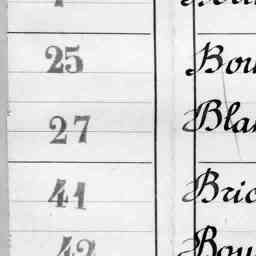 25 Bou
27 Bla
41 Bric
42 Bou